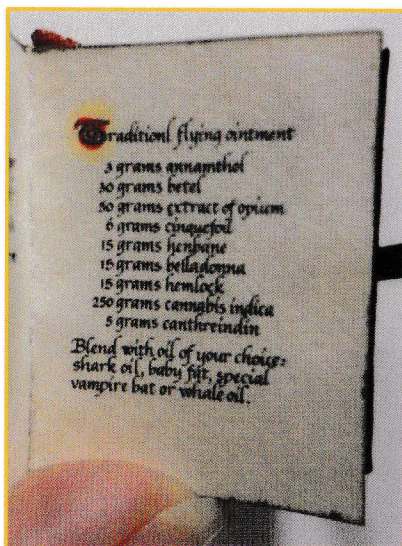 Traditionl flying ointment
3 grams annamthol
30 grams betel
50 grams extract of opium
6 grams cinquefoil
15 grams henbane
15 grams belladonna
15 grams hemlock
250 grams cannabis indica
5 grams canthreindin
Blend with oil of your choice:
shark oil, baby fat, special
vampire bat or whale oil.